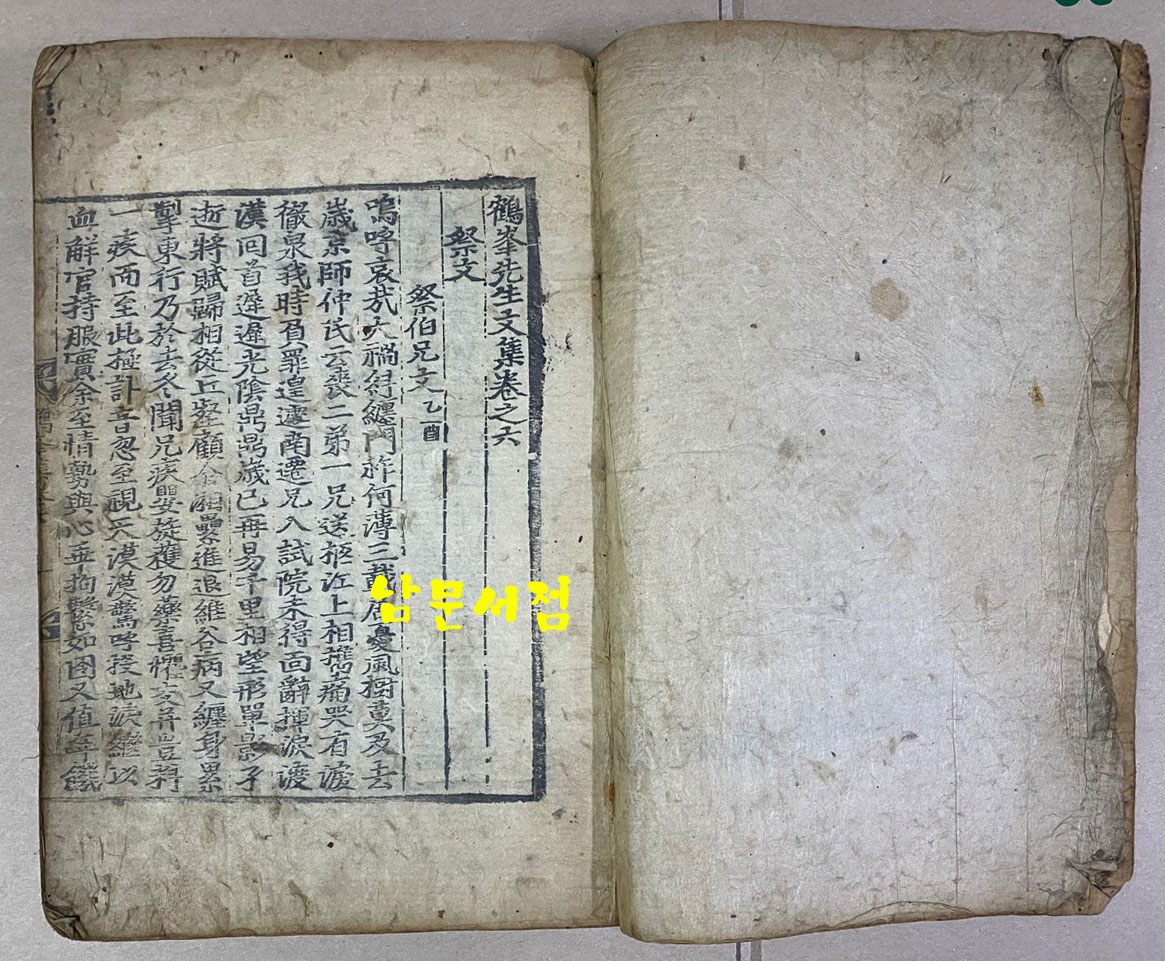 鶴峯先生文集卷之六
祭文
祭伯兄文 乙酉
嗚呼哀哉大禍紏纏門祚何薄三載居憂風樹莫及去
歲京師仲氏云喪二弟一兄送柩江上相携痛哭有淚
徹泉我時負罪遑遽南遷兄入試院未得面辭揮淚渡
漢回首遲遲光陰鼎鼎歲已再易千里相望形單影孑
逝將賦歸相從丘壑顧余湘纍進退維谷病又纏身累
掣東行乃於去冬聞兄疾嬰旋獲勿藥喜懼交并豈料
一疾而至此極訃音忽至視天漠漠驚呼投地淚繼以
血解官持服實余至情勢與心乖拘縶如囚又值年饑
남문서점